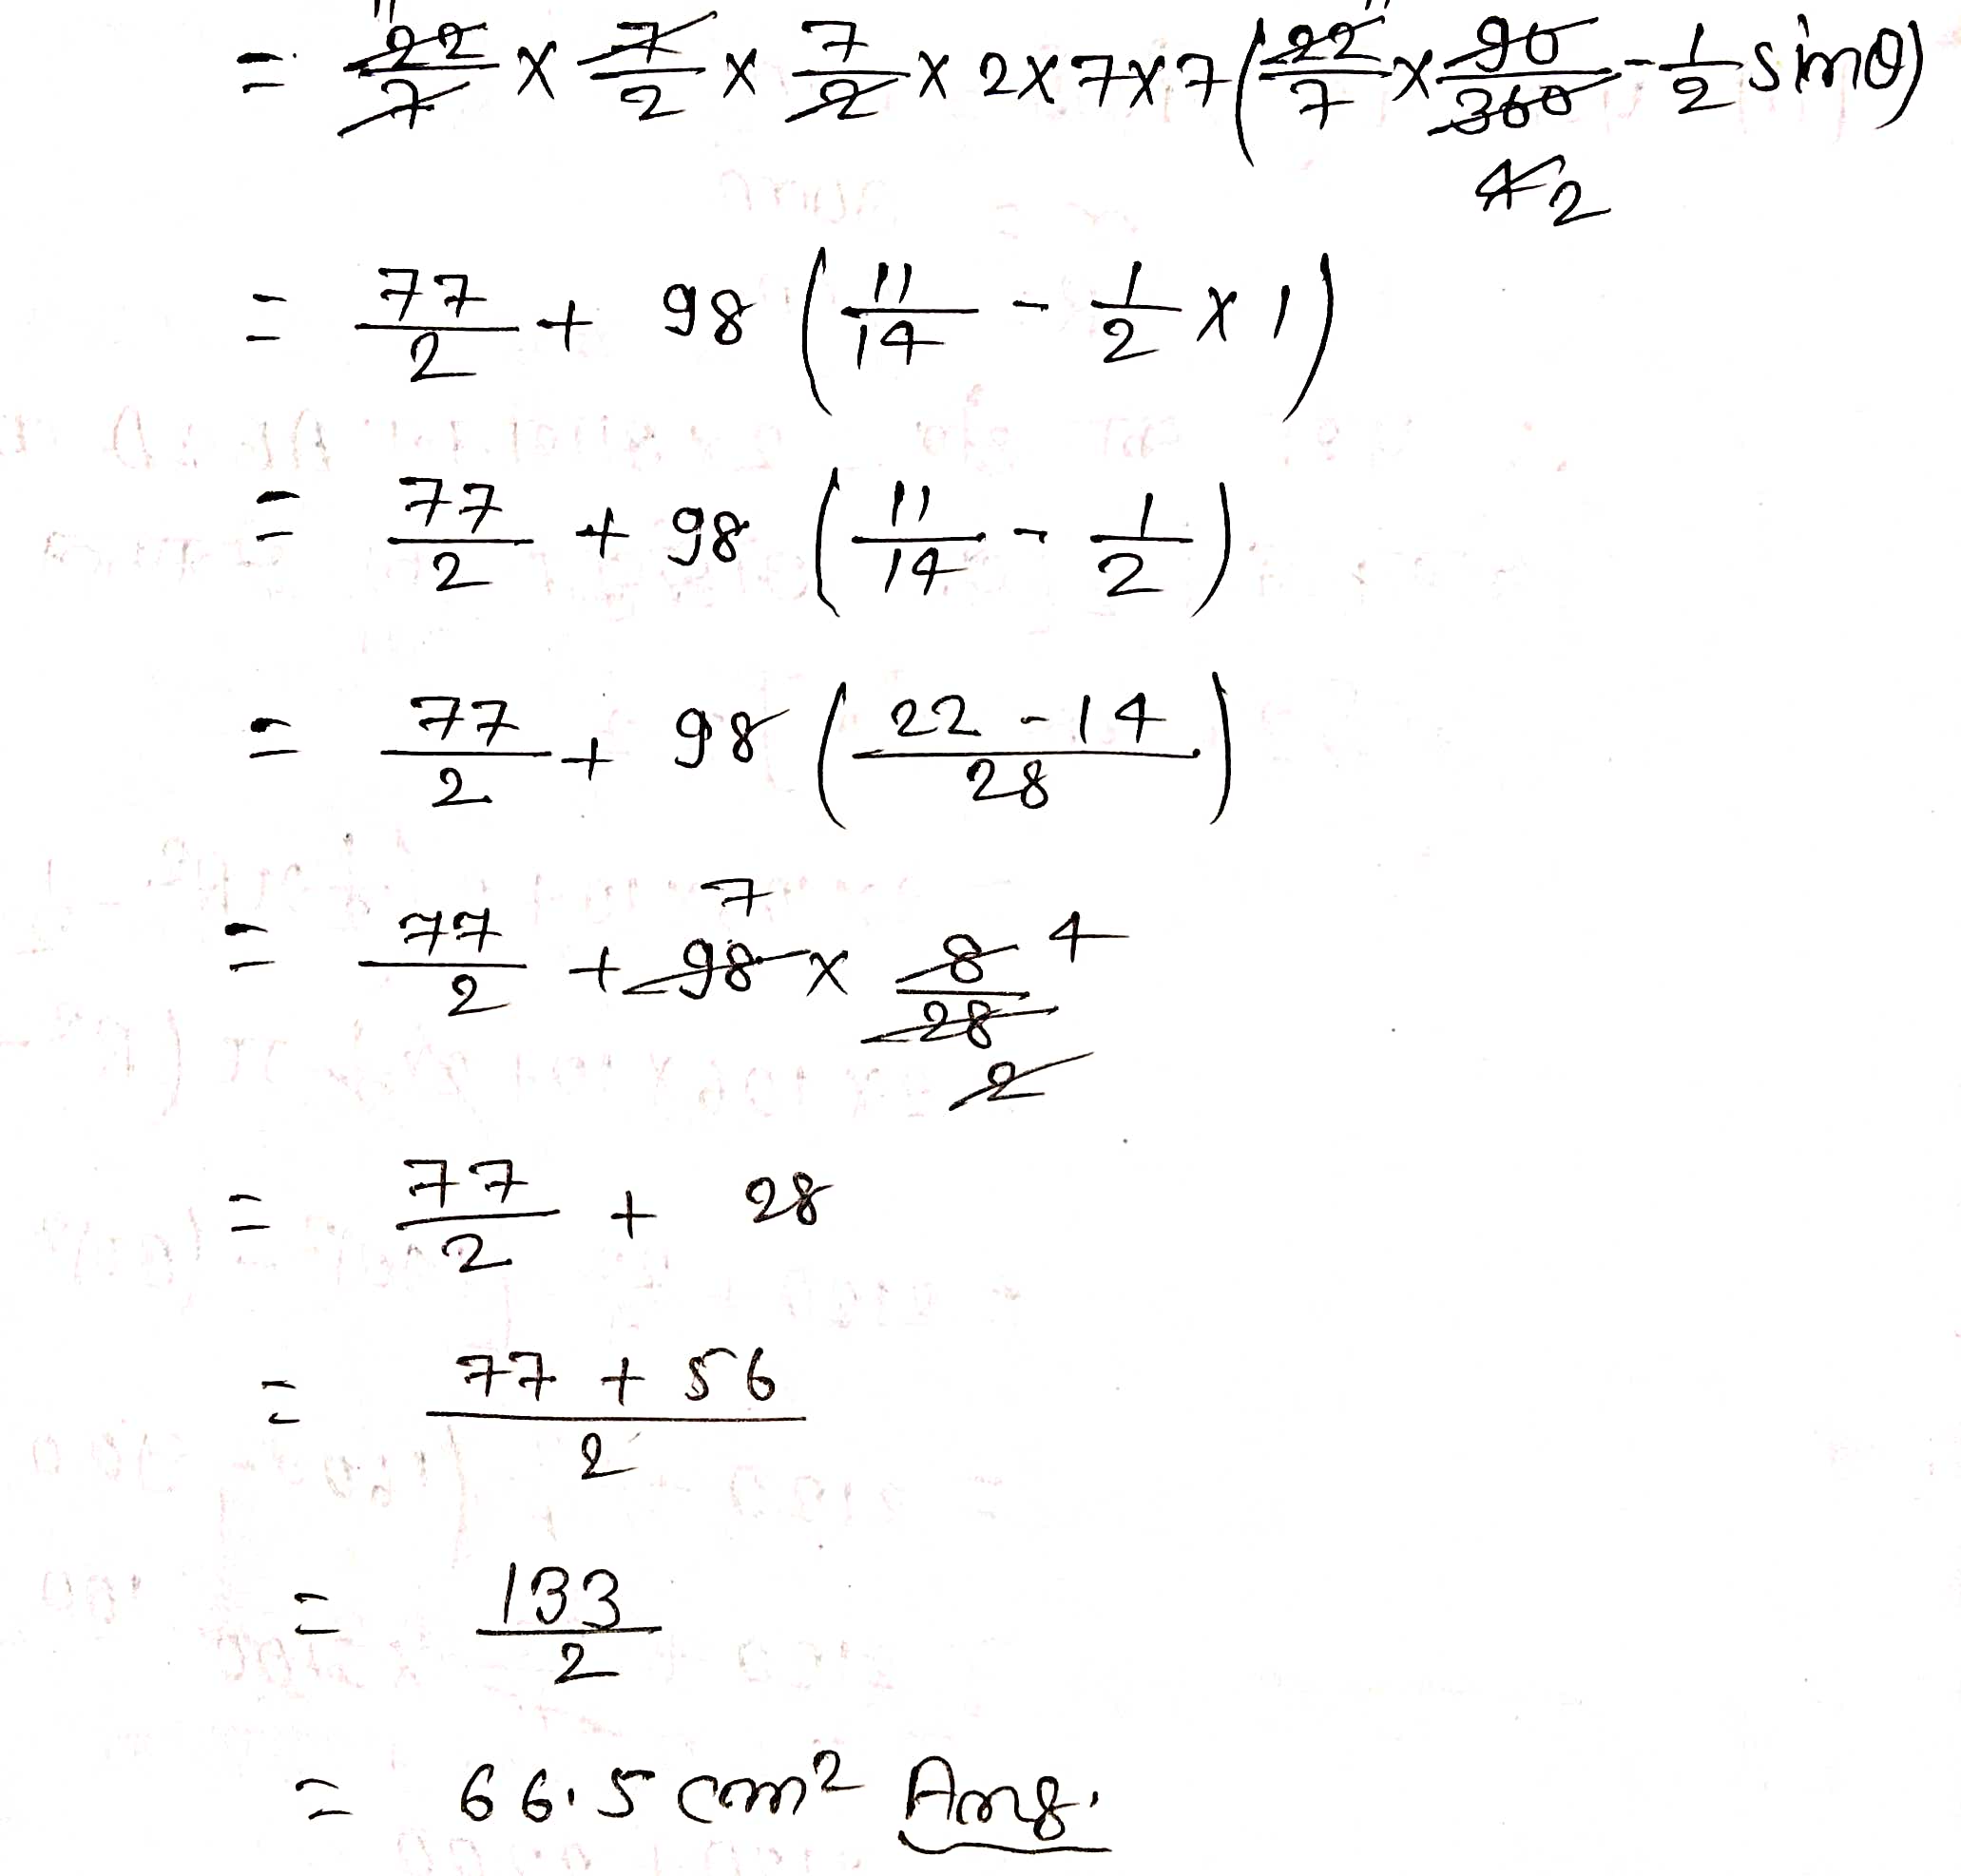 = 22/7 × 7/2 × 7/2 × 2×7×7 (22/7 × 90/360 - 1/2 sinθ)
11 11 4 2
= 77/2 + 98 (11/14 - 1/2 × 1)
= 77/2 + 98 (11/14 - 1/2)
= 77/2 + 98 (22 - 14/28)
= 77/2 + 98 × 8/28
7 4 2
= 77/2 + 28
= 77 + 56/2
= 133/2
= 66.5 cm² Ans.